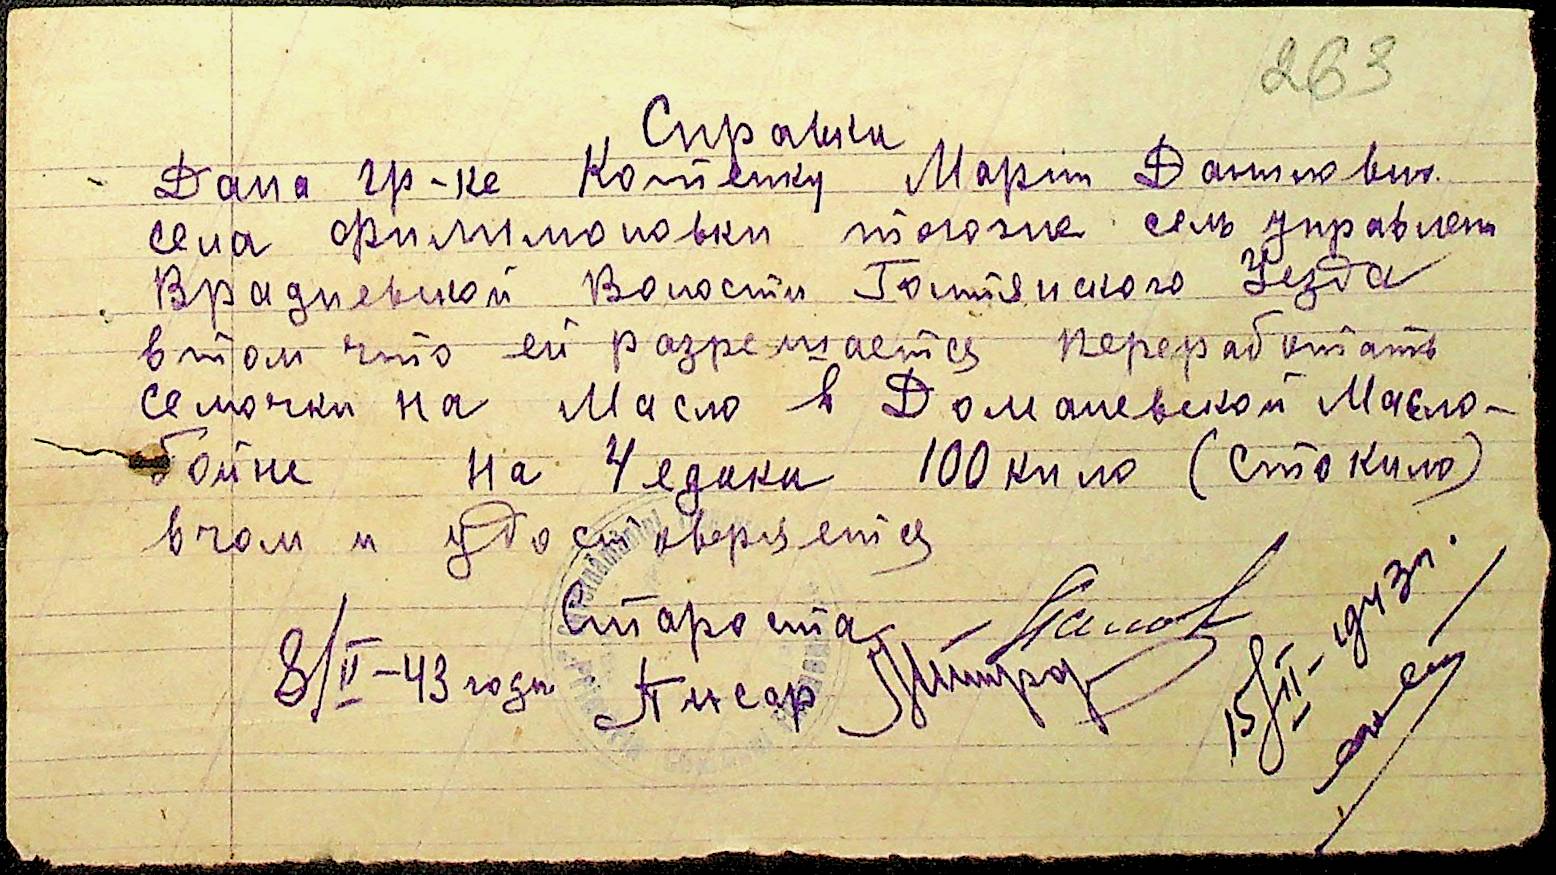 263
Справка
Дана гр-ке Котенку Маріи Даниловн.
села Филимоновки тогоже сель управлени
Врадиевской Волости Голтянского Уезда
втом что ей разрешается переработать
семочки на Масло в Доманевской Масло-
бойне на 4 едака 100 кило (сто кило)
вчом и удостоверяется
Староста
8/II-43 года Писар
15/II-1943 г.